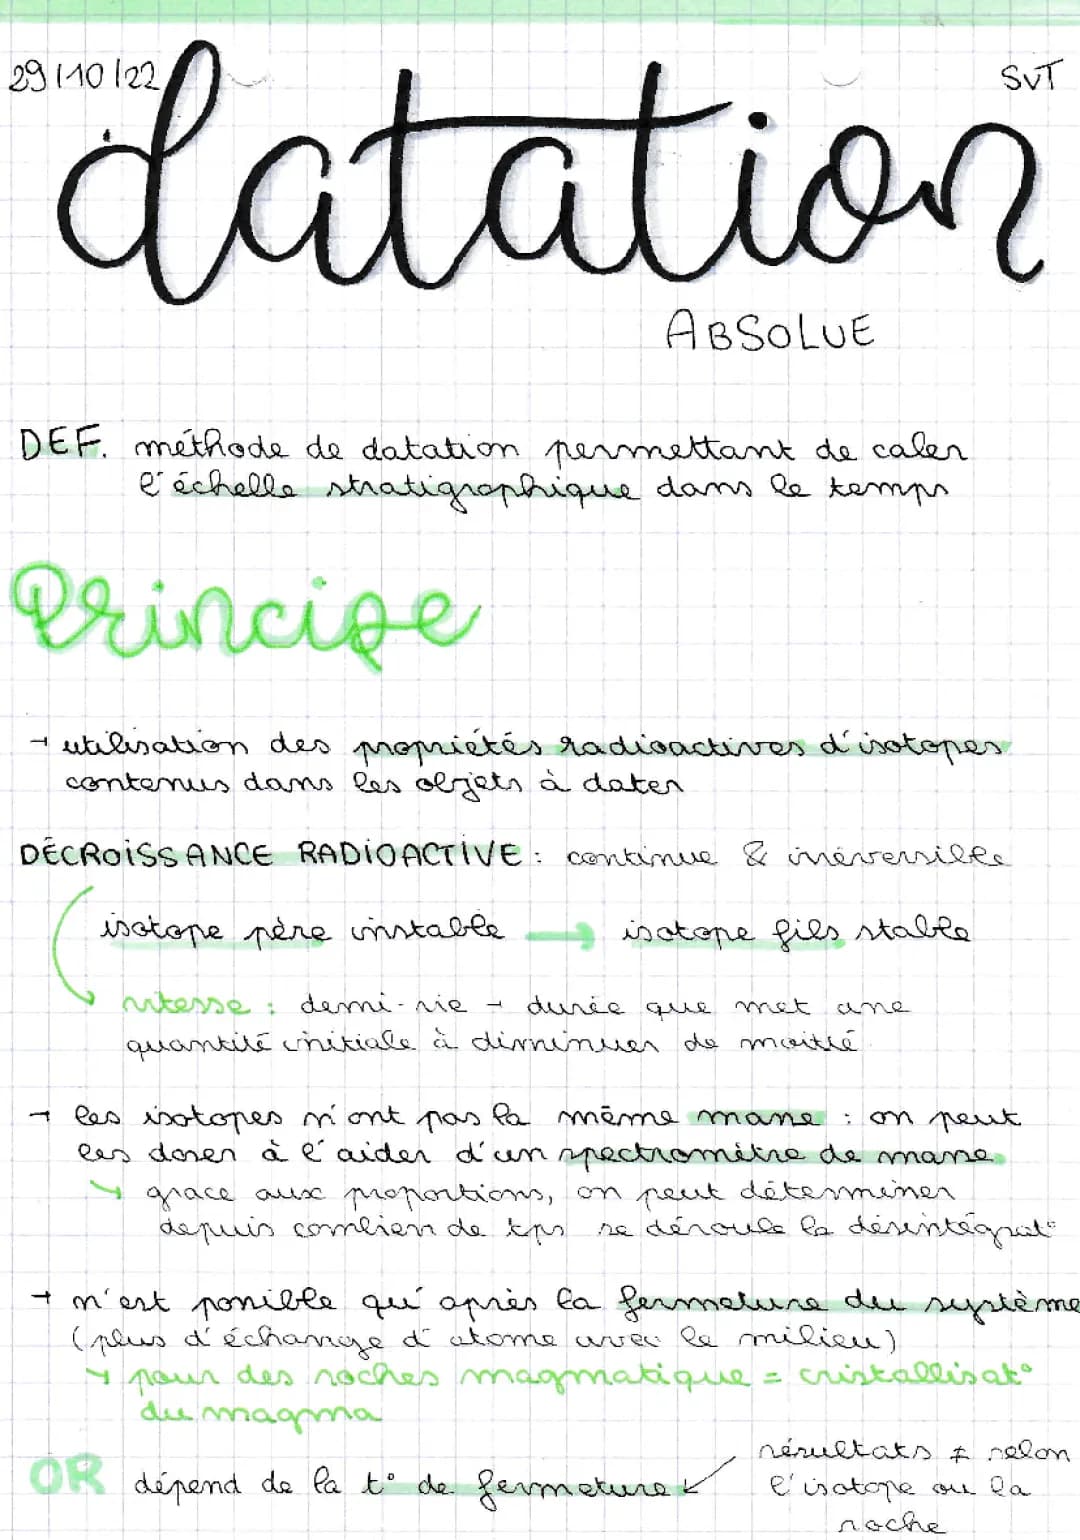 29/10/22
SVT
datation
ABSOLUE
DEF. méthode de datation permettant de caler
l'échelle stratigraphique dans le temps
Principe
→ utilisation des propriétés radioactives d'isotopes
contenus dans les objets à dater
DÉCROISSANCE RADIOACTIVE : continue & irréversible
isotope père instable → isotope fils stable
vitesse : demi-vie → durée que met une
quantité initiale à diminuer de moitié.
→ les isotopes n'ont pas la même masse : on peut
les doser à l'aider d'un spectromètre de masse.
↳ grace aux proportions, on peut déterminer
depuis combien de tps se déroule la désintégrat°
→ n'est possible qu'après la fermeture du système
(plus d'échange d'atome avec le milieu)
↳ pour des roches magmatique = cristallisat°
du magma
OR dépend de la t° de fermeture ↙
résultats ≠ selon
l'isotope ou la
roche